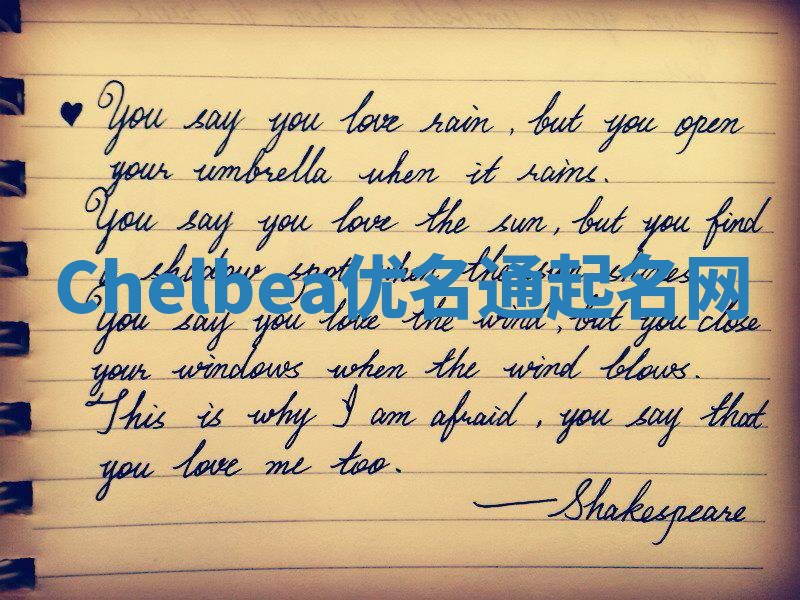 ♥ You say you love rain, but you open
your umbrella when it rains.
You say you love the sun, but you find
a shadow spot when the sun shines.
Chelbea优名通起名网
You say you love the wind, but you close
your windows when the wind blows.
This is why I am afraid, you say that
you love me too.
— Shakespeare